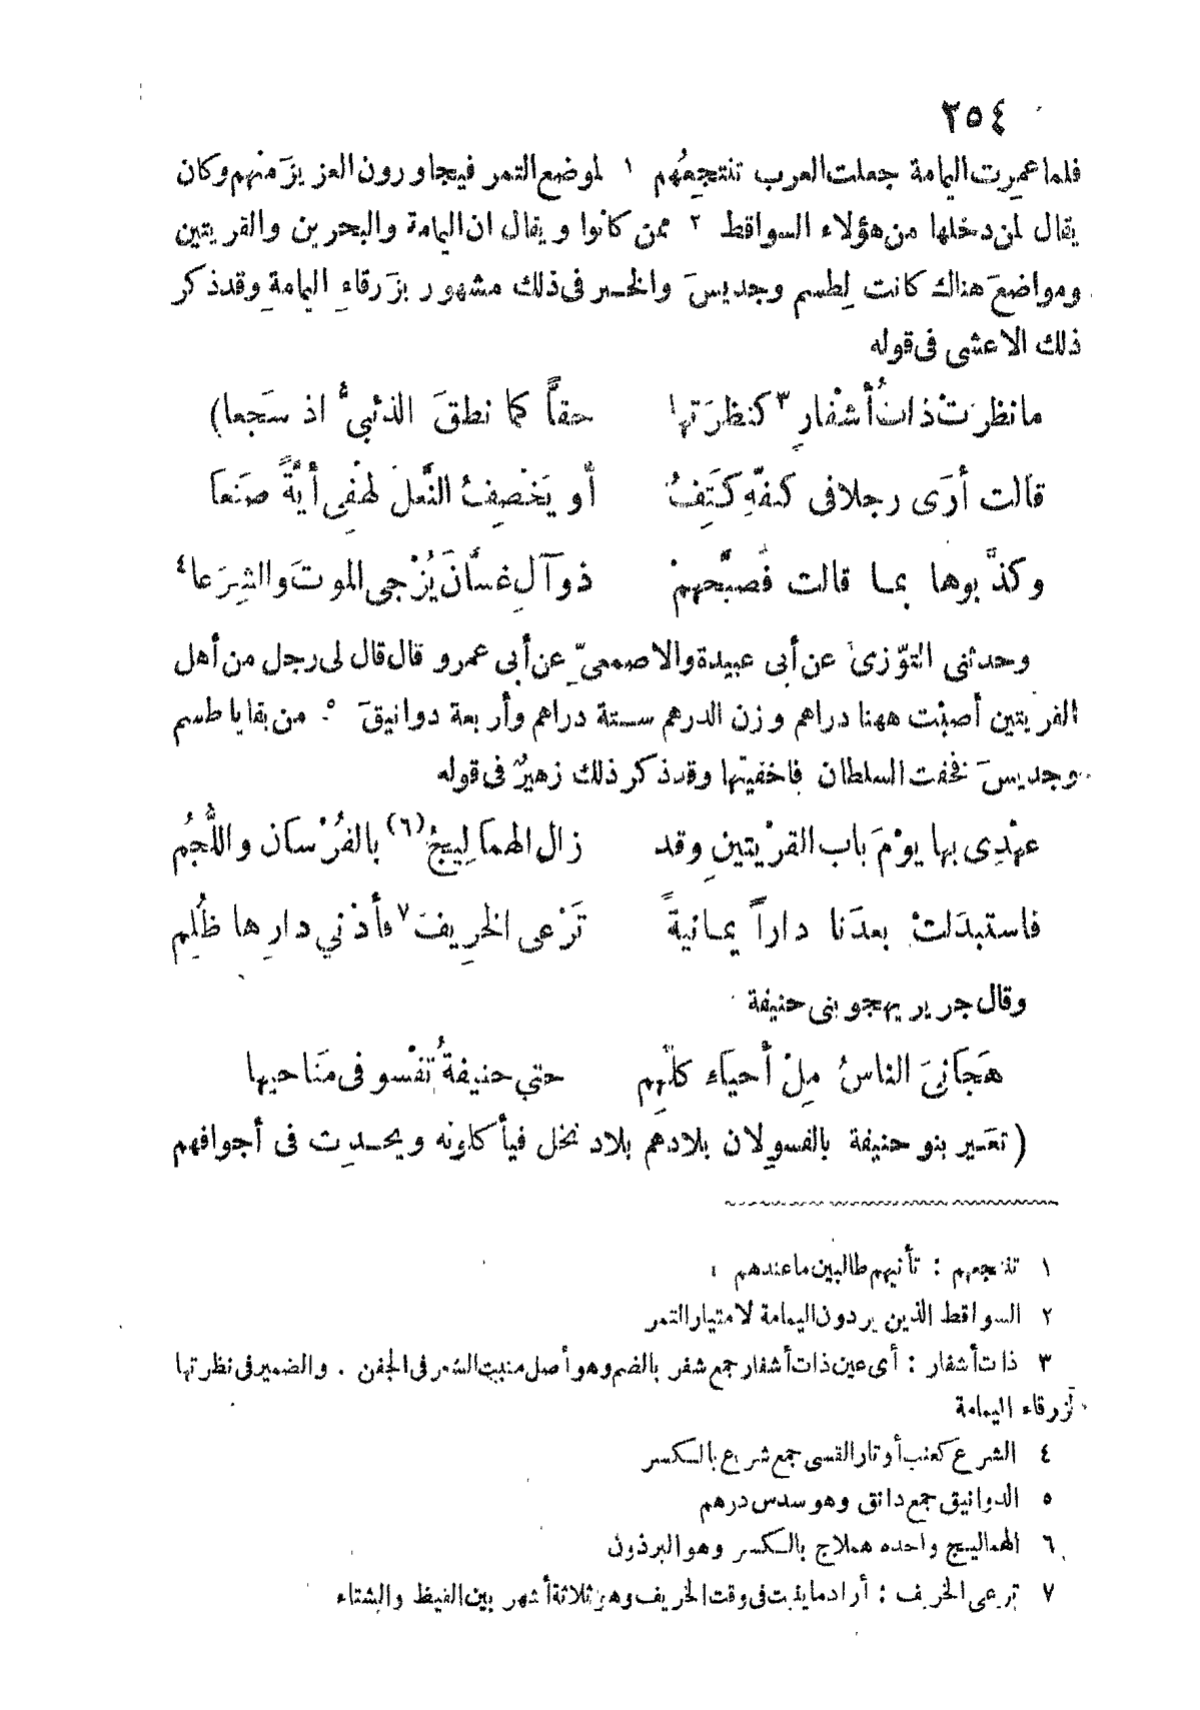 ٢٥٤
فلما عمِرت اليمامة جعلت العرب تنتجِعُهم ١ لموضع التمر فيجاورون العزيزَ منهم وكان
يقال لمن دخلها من هؤلاء السواقط ٢ ممن كانوا ويقال ان اليمامة والبحرين والقريتين
ومواضعَ هناك كانت لِطسم وجديسَ والخبر فى ذلك مشهور بزَرقاءِ اليمامةِ وقد ذكر
ذلك الاعشى فى قوله
مانظرَتْ ذاتُ أشْفارٍ ٣ كنظرَتها حقاًّ كما نطقَ الذئبىُّ اذ سَجعا)
قالت أرَى رجلا فى كفّهِ كَتِفُ أو يَخْصِفُ النَّعلَ لهْفِى أيَّةً صَنَعَا
وكذَّبوها بما قالت فَصبَّحهمْ ذوآلِ غسَّانَ يُزْجى الموتَ والشِرَعا ٤
وحدثنى التوّزىُّ عن أبى عبيدة والاصمعىّ عن أبى عمرو قال قال لى رجل من أهل
القريتين أصبْت ههنا دراهم وزن الدرهم ستة دراهم وأربعة دوانيقَ ٥ من بقايا طسم
وجديسَ فخفت السلطان فاخفيتها وقد ذكر ذلك زهيرٌ فى قوله
عهْدِى بها يوْمَ باب القرْيتينِ وقد زال الهماليجُ (٦) بالفُرْسان واللُّجُم
فاستبدَلتْ بعدَنا داراً يمانيةً تَرْعى الخرِيفَ ٧ فأدْني دارِها ظُلِم
وقال جرير يهجو بنى حنيفة
هَجَانىَ الناسُ مِلْ أحيَاء كلّهِم حتي حنيفةُ تفْسو فى مَنَاحيها
(تعَير بنو حنيفة بالفسو لان بلادهم بلاد نخل فيأكلونه ويحدِث فى أجوافهم
١ تنتجعهم : تأتيهم طالبين ماعندهم
٢ السواقط الذين يردون اليمامة لامتيار التمر
٣ ذات أشفار : أى عين ذات أشفار جمع شفر بالضم وهو أصل منبت الشعر فى الجفن . والضمير فى نظرتها
لزرقاء اليمامة
٤ الشرع كعنب أوتار القسى جمع شرع بالكسر
٥ الدوانيق جمع دانق وهو سدس درهم
٦ الهماليج واحده هملاج بالكسر وهو البرذون
٧ ترعى الخريف : أراد ماينبت فى وقت الخريف وهو ثلاثة أشهر بين القيظ والشتاء